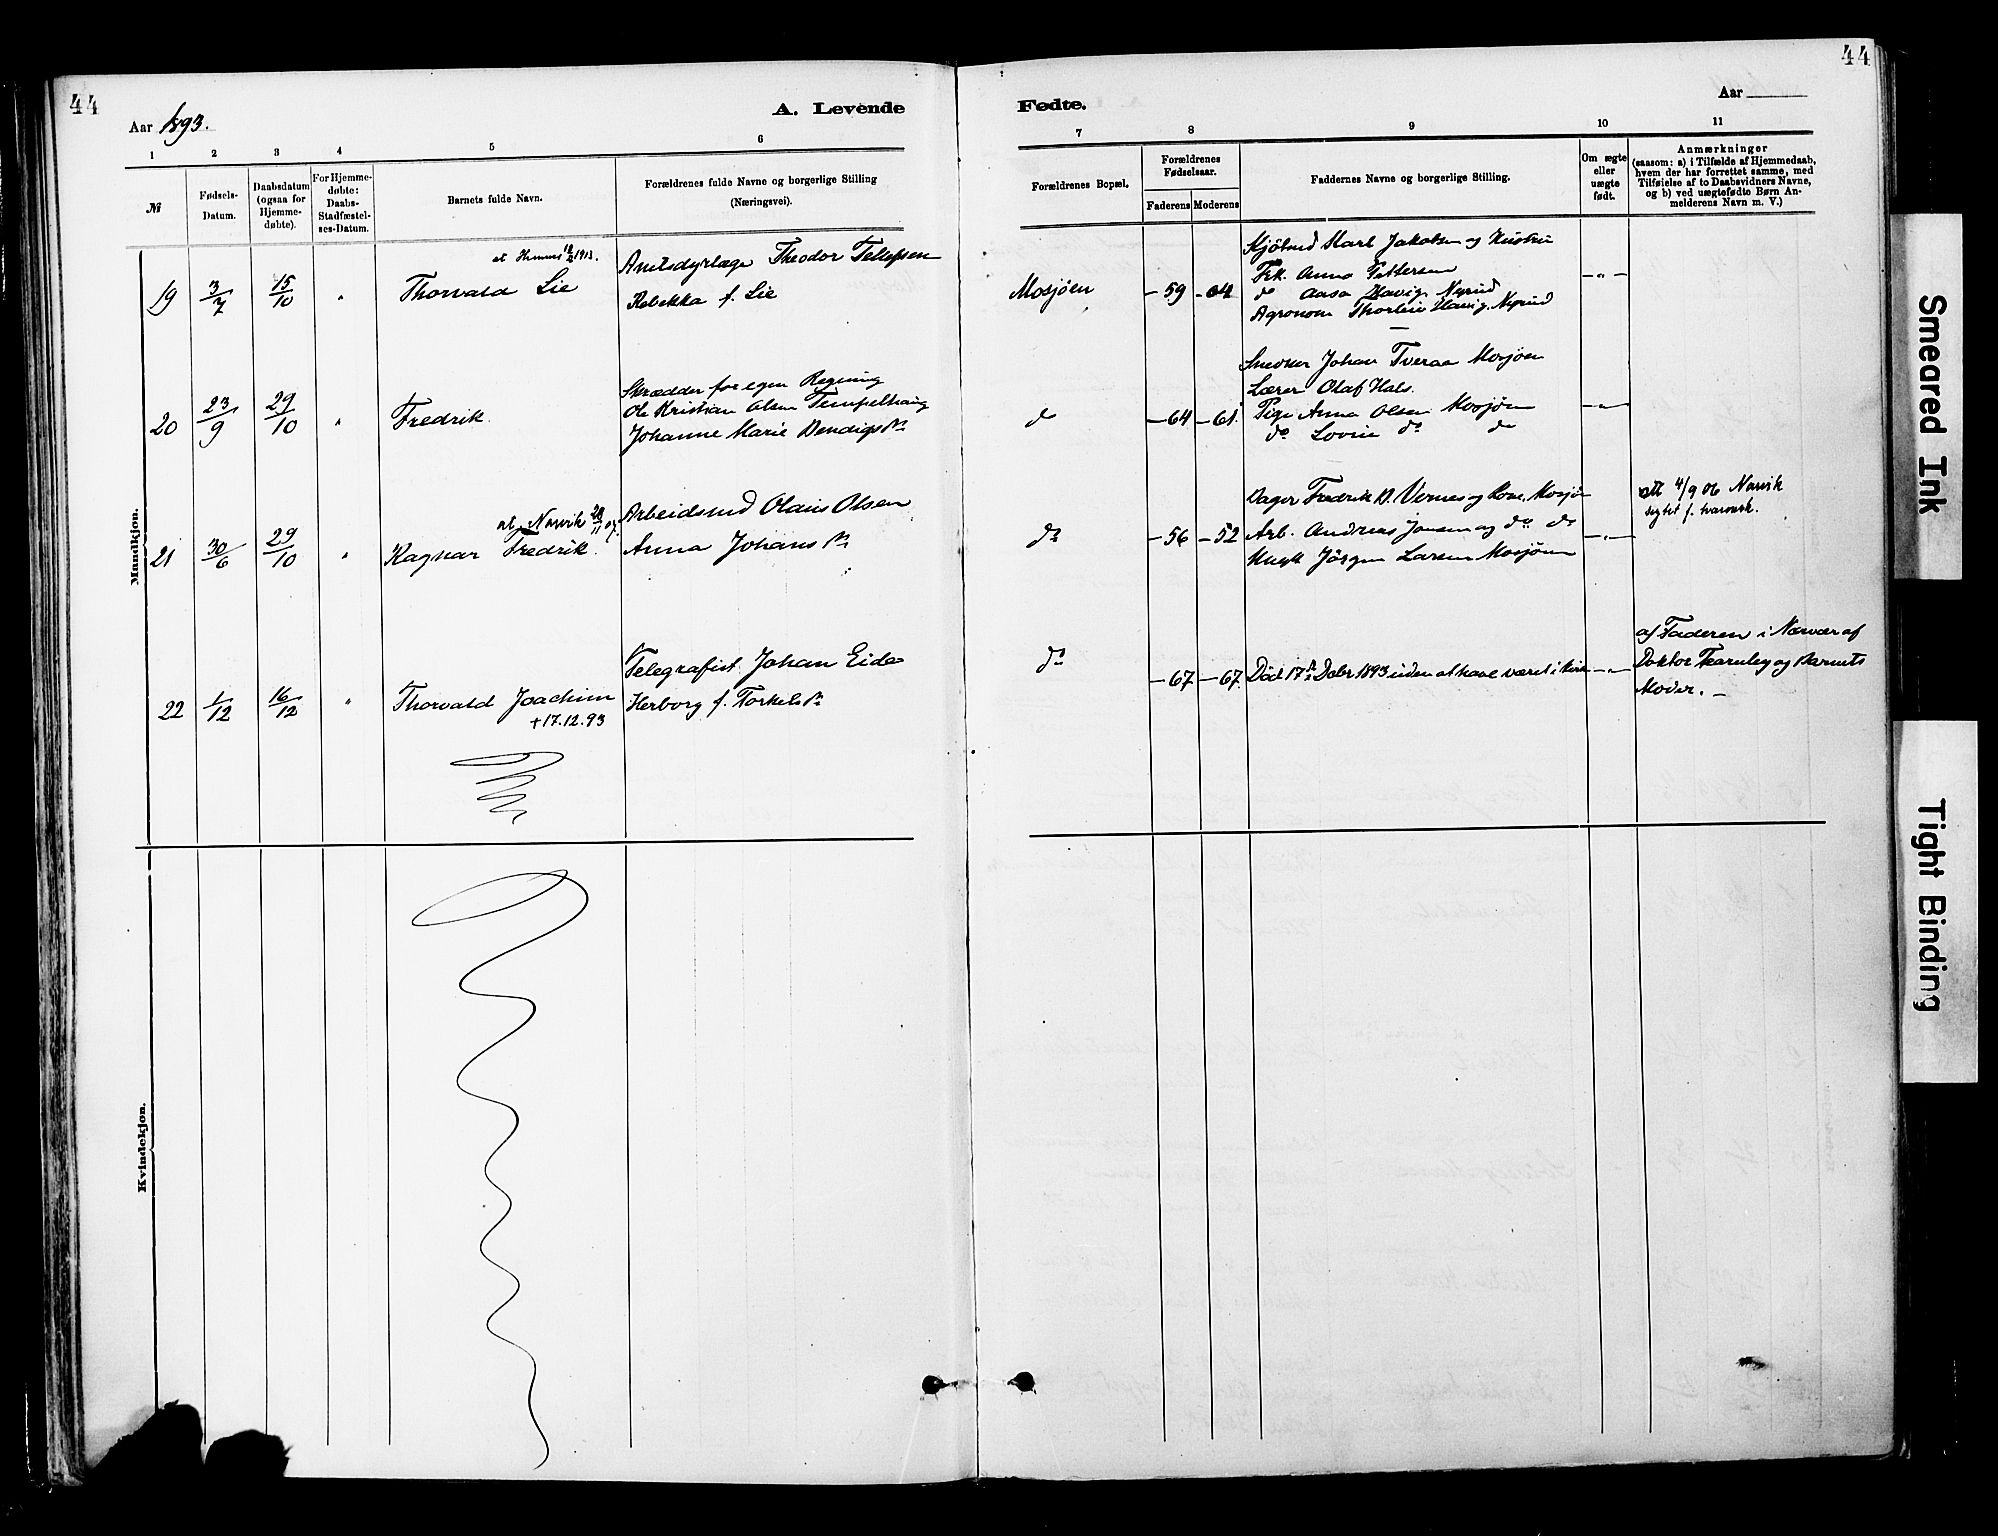 44
44
Aar 1893.
A. Levende
Fødte.
Aar
1
2
3
4
5
6
7
8
9
10
11
№
Fødsels-
Datum.
Daabsdatum
(ogsaa for
Hjemme-
døbte).
For Hjemme-
døbte:
Daabs-
Stadfæstel-
ses-Datum.
Barnets fulde Navn.
Forældrenes fulde Navne og borgerlige Stilling
(Næringsvei).
Forældrenes Bopæl.
Forældrenes
Fødselsaar.
Faderens
Moderens
Faddernes Navne og borgerlige Stilling.
Om ægte
eller
uægte
født.
Anmærkninger
(saasom: a) i Tilfælde af Hjemmedaab,
hvem der har forrettet samme, med
Tilføielse af to Daabsvidners Navne,
og b) ved uægtefødte Børn An-
melderens Navn m. V.)
Mandkjøn.
19
3/7
15/10
"
at Hemnes 1913.
Thorvald Lie
Amtsdyrlæge Theodor Tellefsen
Rebekka f. Lie
Mosjøen
-59
-64
Kjøbmd Karl Jakobsen og Hustru
Frk. Anna Pettersen
do Aasa Havig, Nyrud
Agronom Thorleiv Havig, Nyrud
-"-
20
23/9
29/10
"
Fredrik.
Skrædder for egen Regning
Ole Kristian Olsen Tempelhaug
Johanne Marie Bendigsdr
do
-64
-61.
Snedker Johan Tveraa Mosjøen
Lærer Olaf Hals.
Pige Anna Olsen Mosjøen
do Lovise do do
-"-
21
30/6
29/10
"
at. Narvik 28/11 07.
Ragnar Fredrik.
Arbeidsmd Olaus Olsen
Anna Johansdr
do
-56
-52
Fredrik B. Vernes og Kone, Mosjøen
Arb. Andreas Jensen og do do
Jörgen Larsen Mosjøen
-"-
att 4/9 06 Narvik
22
1/12
16/12
"
Thorvald Joachim
+17.12.93
Telegrafist Johan Eide
Herborg f. Torkelsdr
do
-67
-67.
Død 17de Decbr 1893 uden at have været i Kirke
-"-
af Faderen i Nærvær af
Doktor Thornley og Barnets
Moder. -
Kvindekjøn.
Smeared Ink
Tight Binding